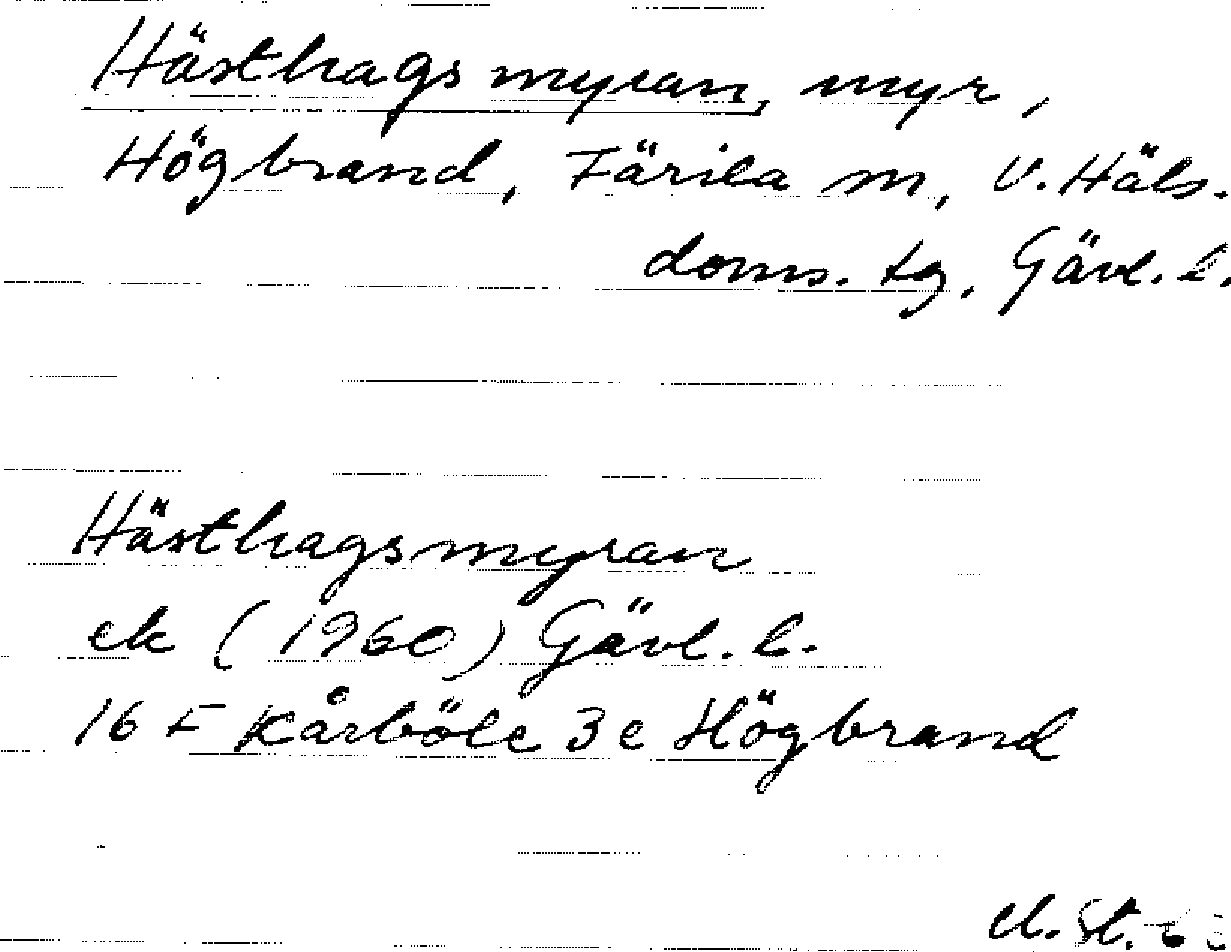 Hästhagsmyran, myr,
Högbrand, Färila m, V. Häls.
doms. tg, Gävl. l.
Hästhagsmyran
ek (1960) Gävl. l.
16 F Kårböle 3 e Högbrand